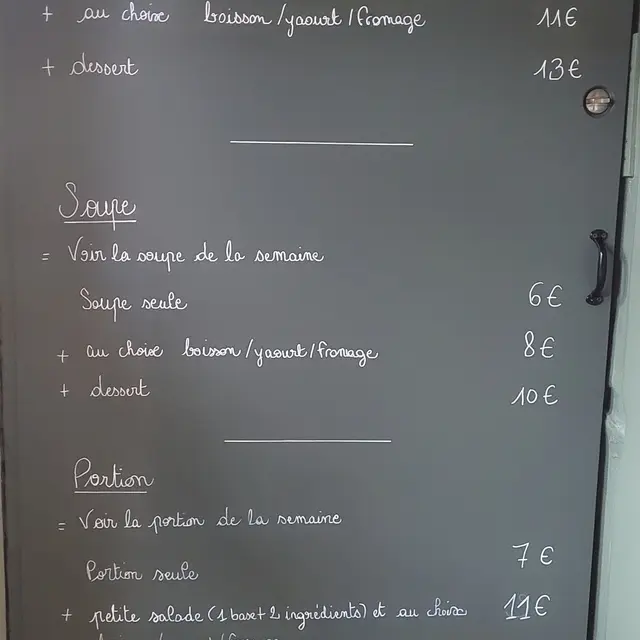 + au choix boisson/yaourt/fromage 11€
+ dessert 13€
Soupe
= Voir la soupe de la semaine
Soupe seule 6€
+ au choix boisson/yaourt/fromage 8€
+ dessert 10€
Portion
= Voir la portion de la semaine
Portion seule 7€
+ petite salade (1 base + 2 ingrédients) et au choix 11€